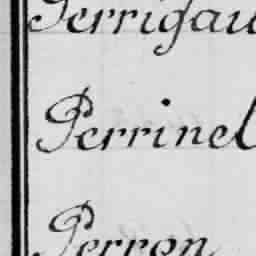 Perrigau
Perrinel
Perron